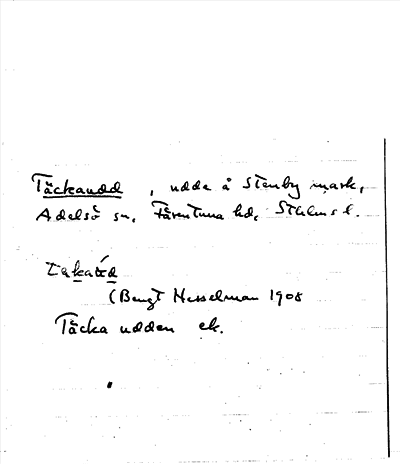 Täckaudd , udde å Stenby mark,
Adelsö sn, Färentuna hd, Sthlms l.
(Bengt Hesselman 1908
Täcka udden ek.